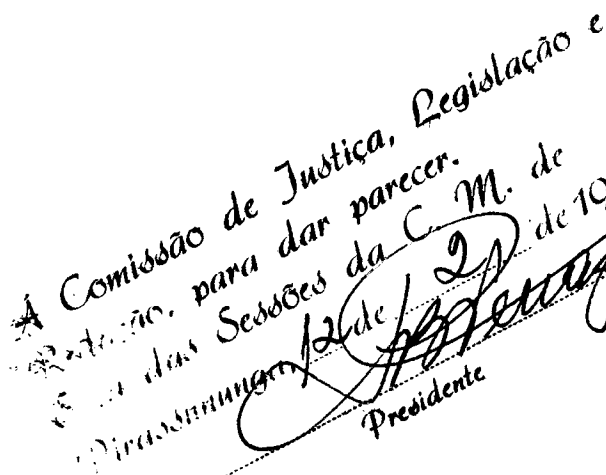 À Comissão de Justiça, Legislação e
Redação, para dar parecer.
das Sessões da C. M. de
Pirassununga, 12 de 2 de 19
Presidente